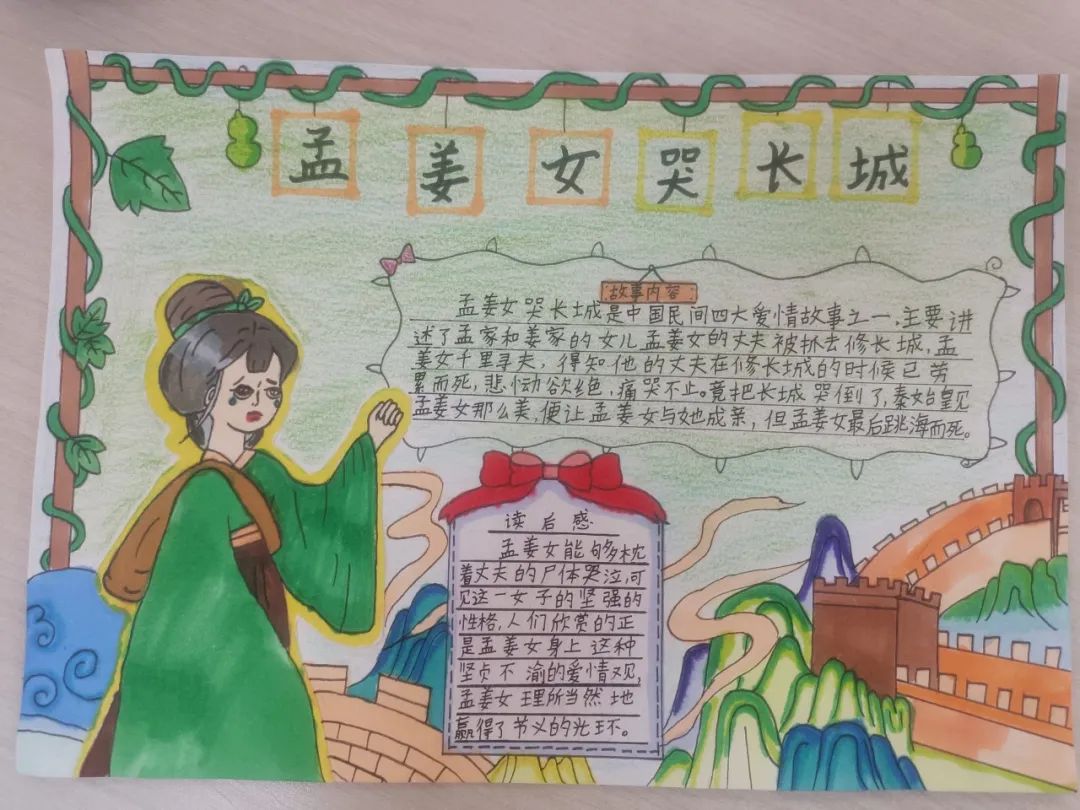 孟姜女哭长城
故事内容:
孟姜女哭长城是中国民间四大爱情故事之一.主要讲
述了孟家和姜家的女儿孟姜女的丈夫被抓去修长城,孟
姜女千里寻夫,得知他的丈夫在修长城的时候已劳
累而死,悲恸欲绝,痛哭不止。竟把长城哭倒了,秦始皇见
孟姜女那么美,便让孟姜女与她成亲,但孟姜女最后跳海而死。
读后感
孟姜女能够枕
着丈夫的尸体哭泣,可
见这一女子的坚强的
性格,人们欣赏的正
是孟姜女身上这种
坚贞不渝的爱情观,
孟姜女理所当然地
赢得了节义的光环。